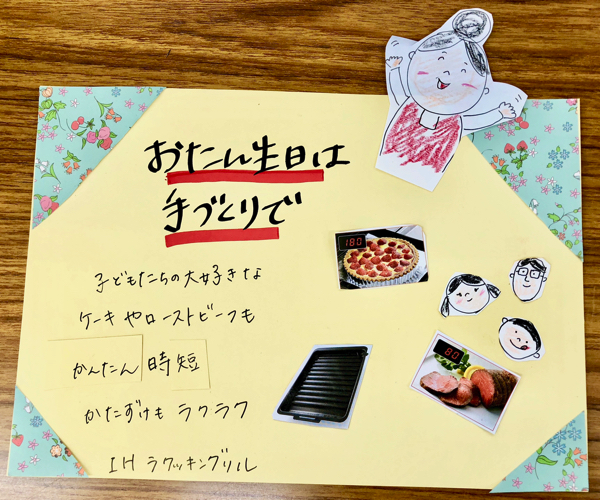 おたん生日は
手づくりで
子どもたちの大好きな
ケーキやローストビーフも
かんたん 時短
かたずけも ラクラク
IH ラクッキングリル
180
80